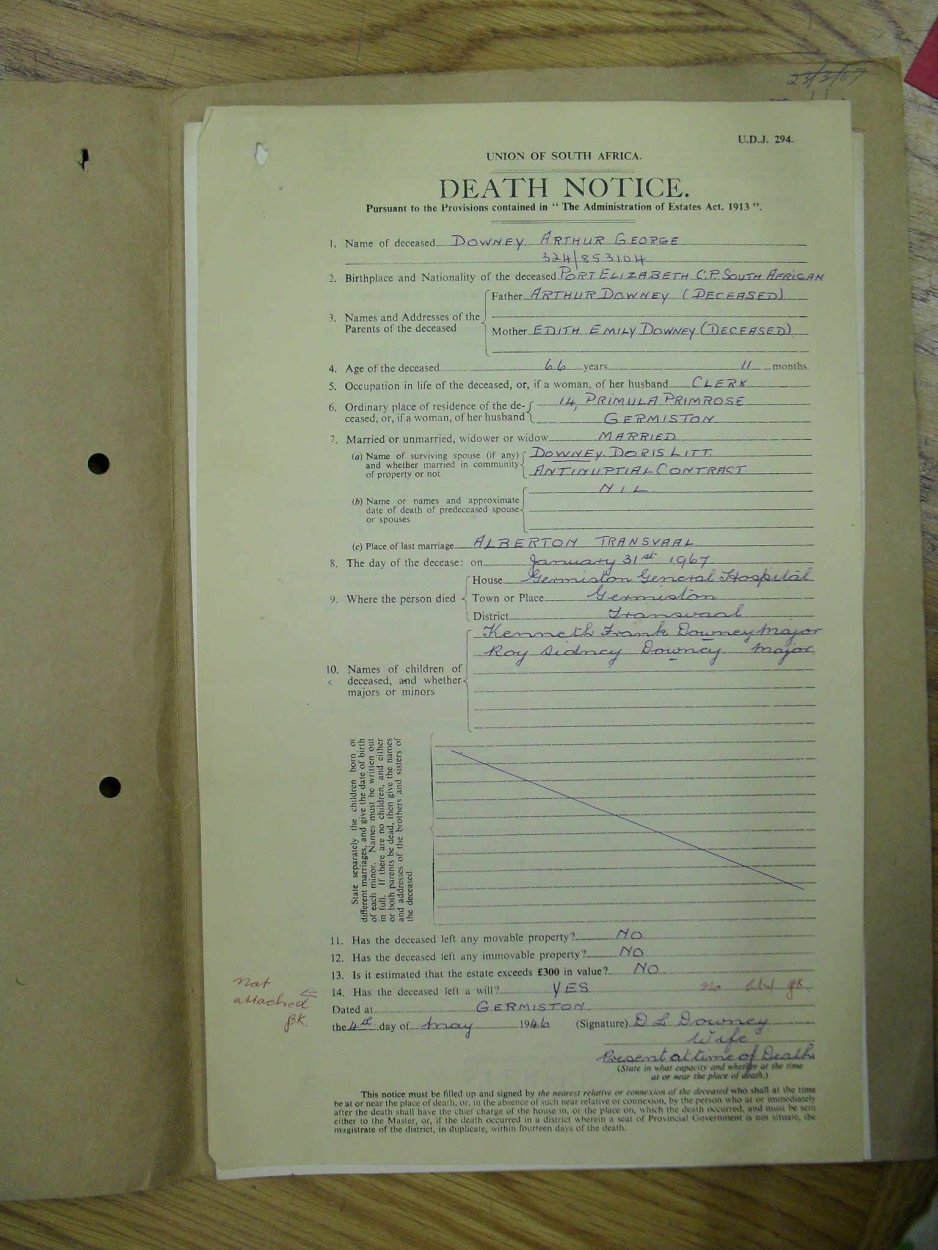 U.D.J. 294.
UNION OF SOUTH AFRICA.
DEATH NOTICE.
Pursuant to the Provisions contained in " The Administration of Estates Act. 1913 ".
1. Name of deceased DOWNEY ARTHUR GEORGE
324/853104
2. Birthplace and Nationality of the deceased PORT ELIZABETH C.P. SOUTH AFRICAN
3. Names and Addresses of the Parents of the deceased
Father ARTHUR DOWNEY (DECEASED)
Mother EDITH EMILY DOWNEY (DECEASED)
4. Age of the deceased 66 years 11 months
5. Occupation in life of the deceased, or, if a woman, of her husband CLERK
6. Ordinary place of residence of the de- 14, PRIMULA PRIMROSE
ceased, or, if a woman, of her husband GERMISTON
7. Married or unmarried, widower or widow MARRIED
(a) Name of surviving spouse (if any) DOWNEY DORIS LITT
and whether married in community ANTINUPTIAL CONTRACT
of property or not
NIL
(b) Name or names and approximate
date of death of predeceased spouse
or spouses
(c) Place of last marriage ALBERTON TRANSVAAL
8. The day of the decease: on January 31st 1967
9. Where the person died
House Germiston General Hospital
Town or Place Germiston
District Transvaal
Kenneth Frank Downey Major
Roy Sidney Downey Major
10. Names of children of
deceased, and whether
majors or minors
State separately the children born of
different marriages, and give the date of birth
of each minor. Names must be written out
in full. If there are no children, and either
or both parents be dead, then give the names
and addresses of the brothers and sisters of
the deceased.
11. Has the deceased left any movable property? NO
12. Has the deceased left any immovable property? NO
13. Is it estimated that the estate exceeds £300 in value? NO
14. Has the deceased left a will? YES
not
attached
Dated at GERMISTON
the 4th day of May 1946 (Signature) D L Downey
Wife
Present at time of Death
(State in what capacity and whether at the time
at or near the place of death.)
This notice must be filled up and signed by the nearest relative or connexion of the deceased who shall at the time
be at or near the place of death, or, in the absence of such near relative or connexion, by the person who at or immediately
after the death shall have the chief charge of the house in, or the place on, which the death occurred, and must be sent
either to the Master, or, if the death occurred in a district wherein a seat of Provincial Government is not situate, the
magistrate of the district, in duplicate, within fourteen days of the death.